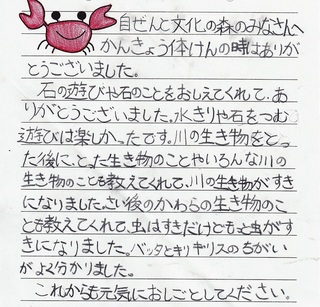 自ぜんと文化の森のみなさんへ
かんきょう体けんの時はありが
とうございました。
石の遊びや石のことをおしえてくれて、あ
りがとうございました。水きりや石をつむ
遊びは楽しかったです。川の生き物をとっ
た後に、とった生き物のことやいろんな川の
生き物のことも教えてくれて、川の生き物がすき
になりました。さい後のかわらの生き物のこ
とも教えてくれて、虫はすきだけどもっと虫がす
きになりました。バッタとキリギリスのちがい
がよく分かりました。
これからも元気におしごとしてください。